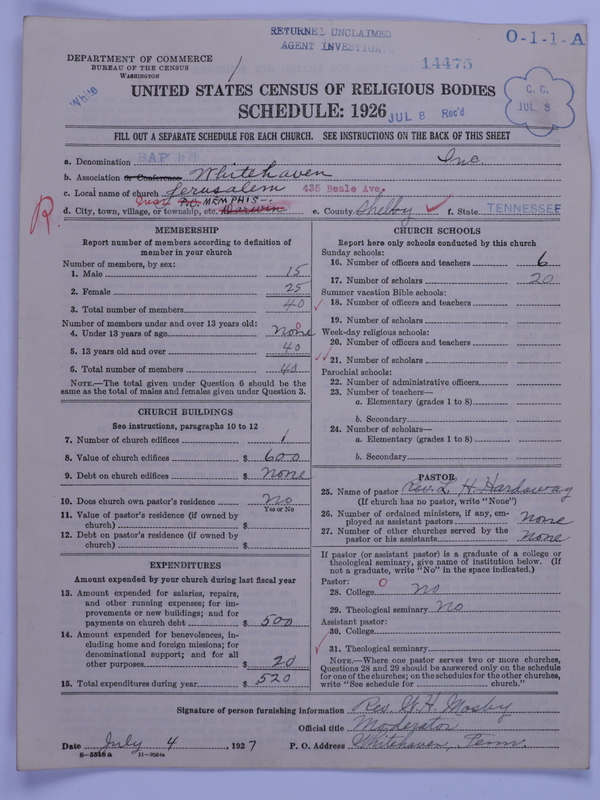 RETURNED UNCLAIMED
AGENT INVESTIGATE
O-1-1-A
DEPARTMENT OF COMMERCE
BUREAU OF THE CENSUS
WASHINGTON
14475
White
C. C.
JUL 8
UNITED STATES CENSUS OF RELIGIOUS BODIES
SCHEDULE: 1926
JUL 8 Rec'd
FILL OUT A SEPARATE SCHEDULE FOR EACH CHURCH. SEE INSTRUCTIONS ON THE BACK OF THIS SHEET
a. Denomination BAPTIST Inc.
b. Association or Conference Whitehaven
c. Local name of church Jerusalem 435 Beale Ave.
P.O. MEMPHIS
d. City, town, village, or township, etc. Darwin e. County Shelby f. State TENNESSEE
R.
MEMBERSHIP
Report number of members according to definition of
member in your church
Number of members, by sex:
1. Male 15
2. Female 25
3. Total number of members 40
Number of members under and over 13 years old:
4. Under 13 years of age None
5. 13 years old and over 40
6. Total number of members 40
NOTE.—The total given under Question 6 should be the
same as the total of males and females given under Question 3.
CHURCH BUILDINGS
See instructions, paragraphs 10 to 12
7. Number of church edifices 1
8. Value of church edifices $ 600
9. Debt on church edifices $ None
10. Does church own pastor's residence No
Yes or No
11. Value of pastor's residence (if owned by
church) $
12. Debt on pastor's residence (if owned by
church) $
EXPENDITURES
Amount expended by your church during last fiscal year
13. Amount expended for salaries, repairs,
and other running expenses; for im-
provements or new buildings; and for
payments on church debt $ 500
14. Amount expended for benevolences, in-
cluding home and foreign missions; for
denominational support; and for all
other purposes $ 20
15. Total expenditures during year $ 520
CHURCH SCHOOLS
Report here only schools conducted by this church
Sunday schools:
16. Number of officers and teachers 6
17. Number of scholars 20
Summer vacation Bible schools:
18. Number of officers and teachers
19. Number of scholars
Week-day religious schools:
20. Number of officers and teachers
21. Number of scholars
Parochial schools:
22. Number of administrative officers
23. Number of teachers—
a. Elementary (grades 1 to 8)
b. Secondary
24. Number of scholars—
a. Elementary (grades 1 to 8)
b. Secondary
PASTOR
25. Name of pastor Rev. L. H. Hardaway
(If church has no pastor, write "None")
26. Number of ordained ministers, if any, em-
ployed as assistant pastors None
27. Number of other churches served by the
pastor or his assistants None
If pastor (or assistant pastor) is a graduate of a college or
theological seminary, give name of institution below. (If
not a graduate, write "No" in the space indicated.)
Pastor:
28. College No
29. Theological seminary No
Assistant pastor:
30. College
31. Theological seminary
NOTE.—Where one pastor serves two or more churches,
Questions 28 and 29 should be answered only on the schedule
for one of the churches; on the schedules for the other churches,
write "See schedule for church."
Signature of person furnishing information Rev. G. H. Mosby
Official title Moderator
Date July 4, 1927 P. O. Address Whitehaven, Tenn.
8-5546a 11-9054a